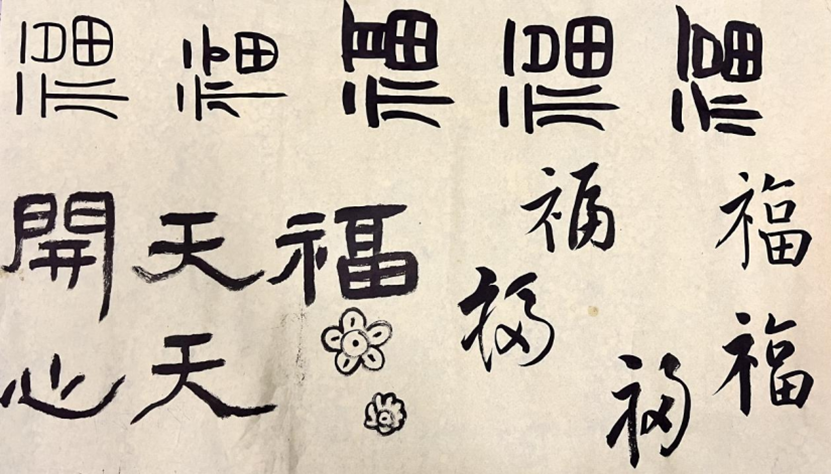 福福福福福
福
福
福
福
福
福
天天
開心